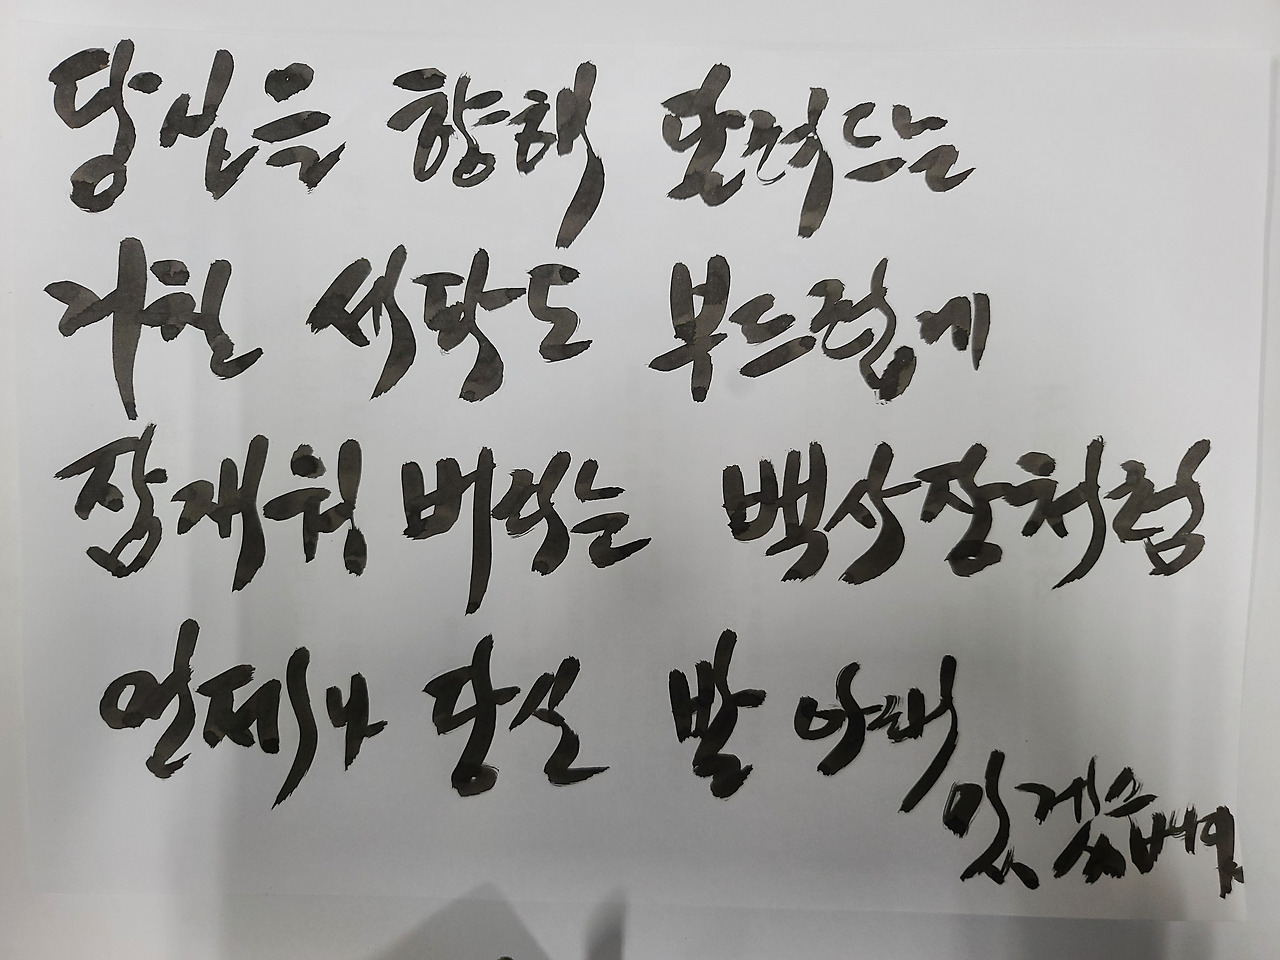 당신을 향해 달려드는
거친 세월도 부드럽게
잠재워 버리는 백사장처럼
언제나 당신 발 아래
있겠습니다